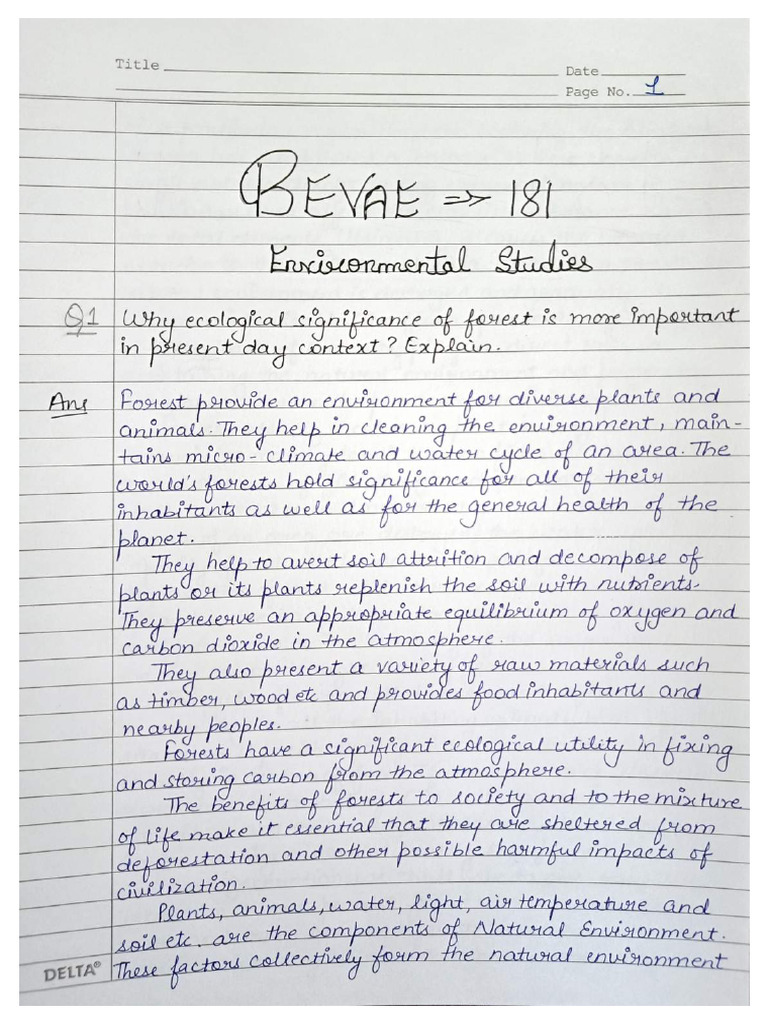 Title
Date
Page No. 1
BEVAE => 181
Environmental Studies
Q1 Why ecological significance of forest is more important
in present day context? Explain.
Ans Forest provide an environment for diverse plants and
animals. They help in cleaning the environment, main-
tains micro-climate and water cycle of an area. The
world's forests hold significance for all of their
inhabitants as well as for the general health of the
planet.
They help to avert soil attrition and decompose of
plants or its plants replenish the soil with nutrients.
They preserve an appropriate equilibrium of oxygen and
carbon dioxide in the atmosphere.
They also present a variety of raw materials such
as timber, wood etc and provides food inhabitants and
nearby peoples.
Forests have a significant ecological utility in fixing
and storing carbon from the atmosphere.
The benefits of forests to society and to the mixture
of life make it essential that they are sheltered from
deforestation and other possible harmful impacts of
civilization.
Plants, animals, water, light, air temperature and
soil etc. are the components of Natural Environment.
DELTA® These factors collectively form the natural environment